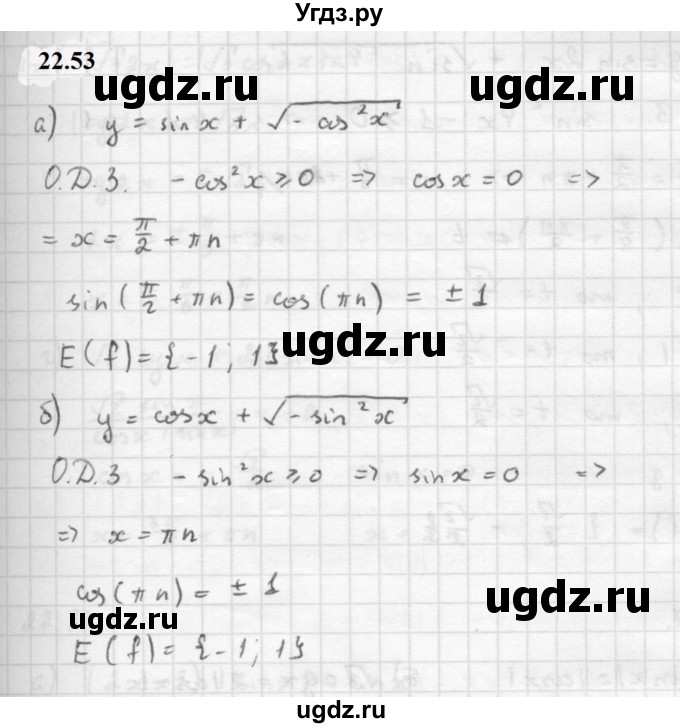 Угдз.ру
22.53
ugdz.ru ugdz.ru
а) y = sin x + √(- cos²x)
О.Д.З. - cos²x ⩾ 0 => cos x = 0 =>
= x = π/2 + πn
sin(π/2 + πn) = cos(πn) = ± 1
ugdz.ru
E(f) = {-1; 1}
б) y = cos x + √(-sin²x)
О.Д.З - sin²x ⩾ 0 => sin x = 0 =>
ugdz.ru
=> x = πn
cos(πn) = ± 1
ugdz.ru
E(f) = {-1; 1}
ugdz.ru